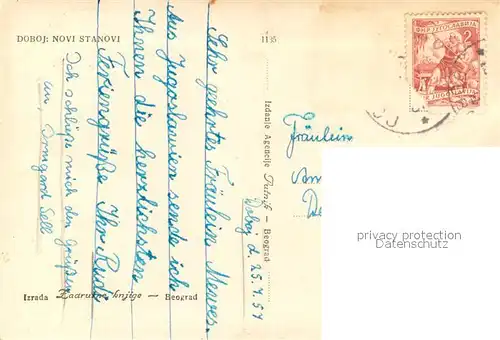 DOBOJ: NOVI STANOVI
1135
Sehr geehrtes Fräulein Mewes.
Aus Jugoslawien sende ich
Ihnen die herzlichsten
Feriengrüße Ihr Rudi
Ich schließe mich den Grüßen
an, Irmgard Sell
Doboj d. 25.7.57
Izdanje Agencije „Putnik" — Beograd
Izrada „Zadružne knjige" — Beograd
Fräulein
ФНР ЈУГОСЛАВИЈА
2
FNR JUGOSLAVIJA
privacy protection
Datenschutz